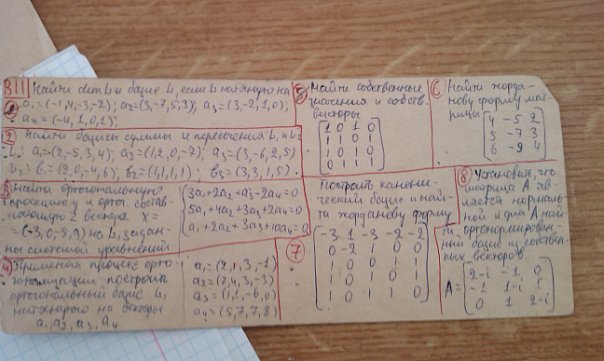 В11 Найти dim L и базис L, если L натянуто на
① a₁=(-1,4,-3,-2); a₂=(3,-7,5,3); a₃=(3,-2,1,0);
a₄=(-4,1,0,1);
② Найти базисы суммы и пересечения L₁ и L₂
L₁: a₁=(2,-5,3,4); a₂=(1,2,0,-7); a₃=(3,-6,2,5)
L₂: b₁=(2,0,-4,6); b₂=(1,1,1,1); b₃=(3,3,1,5).
③ Найти ортогональную
проекцию y и ортог. состав-
ляющую z вектора x =
=(-3,0,-5,9) на L, задан-
ны системой уравнений
3a₁+2a₂+a₃-2a₄=0
5a₁+4a₂+3a₃+2a₄=0
a₁+2a₂+3a₃+10a₄=0
④ Применяя процесс орто-
гонализации построить
ортогональный базис L,
натянутого на векторы
a₁, a₂, a₃, a₄
a₁=(2,1,3,-1)
a₂=(7,4,3,-3)
a₃=(1,1,-6,0)
a₄=(5,7,7,8)
⑤ Найти собственные
значения и собств.
векторы
1 0 1 0
1 1 0 1
1 0 1 0
0 1 1 1
⑥ Найти жорда-
нову форму мат-
рицы
4 -5 2
5 -7 3
6 -9 4
Построить канони-
ческий базис и най-
ти жорданову форму
⑦
-3 1 -3 -2 -2
0 -2 1 0 0
1 0 0 1 1
1 0 1 0 1
1 0 1 1 0
⑧ Установить, что
матрица A яв-
ляется нормаль-
ной и для A най-
ти ортонормирован-
ный базис из собствен-
ных векторов
A=
2-i -1 0
-1 1-i 1
0 1 2-i